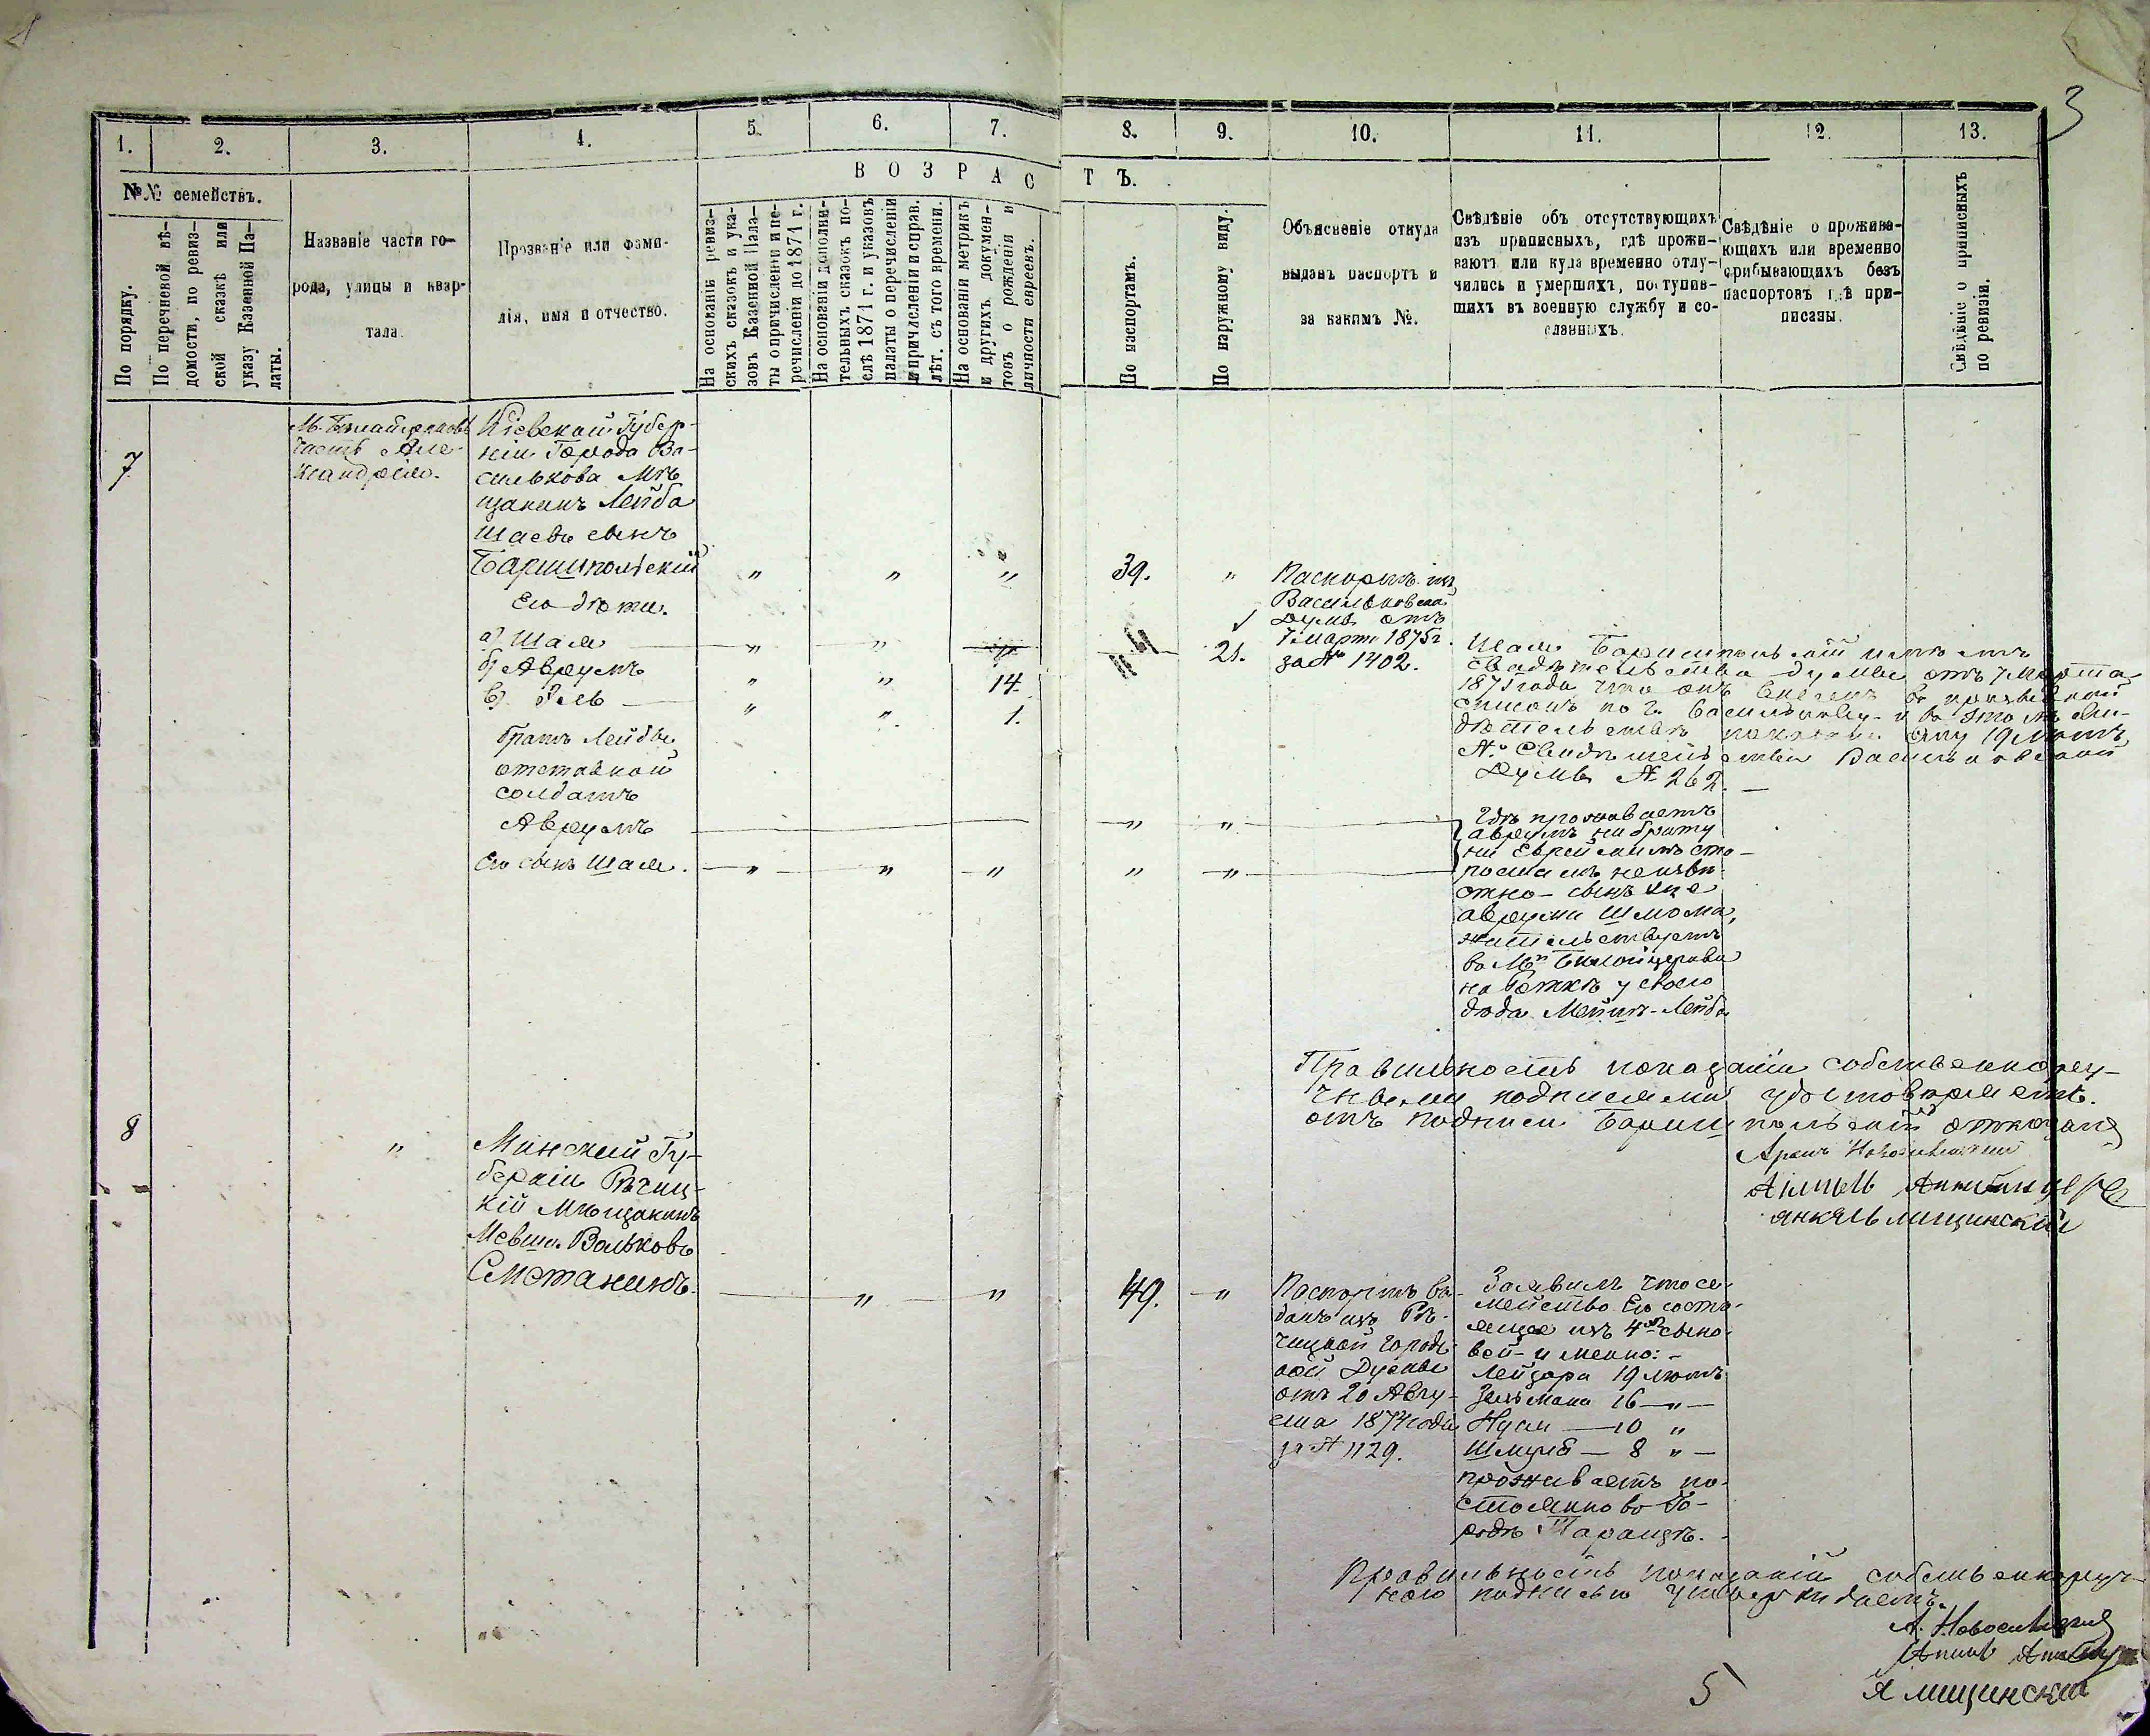 3
1.
2.
3.
4.
5.
6.
7.
8.
9.
10.
11.
12.
13.
№№ семействъ.
ВОЗРАСТЪ.
По порядку.
По перечневой вѣ-
домости, по ревиз-
ской сказкѣ или
указу Казенной Па-
латы.
Названіе части го-
рода, улицы и квар-
тала.
Прозваніе или фами-
лія, имя и отчество.
На основаніи ревиз-
скихъ сказокъ и ука-
зовъ Казенной Пала-
ты о причисленіи и пе-
речисленіи до 1871 г.
На основаніи дополни-
тельныхъ сказокъ по-
слѣ 1871 г. и указовъ
палаты о перечисленіи
и причисленіи и справ.
лѣт. съ того времени.
На основаніи метрикъ
и другихъ докумен-
товъ о рожденіи и
личности евреекъ.
По паспортамъ.
По наружному виду.
Объясненіе откуда
выданъ паспортъ и
за какимъ №.
Свѣдѣніе объ отсутствующихъ
изъ приписныхъ, гдѣ прожи-
ваютъ или куда временно отлу-
чились и умершихъ, поступив-
шихъ въ военную службу и со-
сланныхъ.
Свѣдѣніе о прожива-
ющихъ или временно
прибывающихъ безъ
паспортовъ гдѣ при-
писаны.
Свѣдѣніе о приписныхъ
по ревизіи.
7
часть Але-
ксандрія.
Кіевской Губер-
ніи Города Ва-
силькова Мѣ
щанинъ Лейба
Шаевъ сынъ
Баришпольскій " " " 39. "
Его дѣти.
а) Шая " " 21.
б) Аврумъ " " 14
в) " " 1.
братъ Лейбы
отставной
солдатъ
Аврумъ " "
Его сынъ Шая. " " " " "
Паспортъ изъ
Васильковской
Думы отъ
7 марта 1875 г.
за № 1402.
Шая Баришпольскій имѣетъ
свидѣтельство думы отъ 7 Марта
1875 года что онъ внесенъ въ призывной
списокъ по г. Василькову и въ этомъ сви-
дѣтельствѣ показано ему 19 лѣтъ
№ Свидѣтельства Васильковской
Думы № 262.
Гдѣ проживаетъ
Аврумъ ни брату
ни Еврейскимъ ста-
ростамъ неизвѣ-
стно - сынъ же
Аврума Шлома,
жительствуетъ
въ Мѣ Бѣлойцеркви
у своего
дѣда Лейба
Правильность показаній собственнору-
чными подписями удостовѣряемъ.
отъ подписи Баришпольскій отказался
Аронъ Новоселицкій
Янкель Лищинский
8
"
Минской Гу-
берніи Рѣчиц-
кій Мѣщанинъ
Мевша Вольковъ
Сметанинъ. " " 49. "
Паспортъ вы-
данъ изъ Рѣ-
чицкой Город-
ской Думы
отъ 20 Авгу-
ста 1874 года
за № 1129.
Заявилъ что се-
мейство Его состо-
ящее изъ 4хъ сыно-
вей - и менно: -
Лейзора 19 лѣтъ
Зельмана 16 "
10 "
Шмуля 8 "
проживаетъ по-
стоянно въ Го-
родѣ Таращѣ.
Правильность показаній собственноруч-
ною подписью утверждаемъ.
А. Новоселицкій
Я Лищинский
5